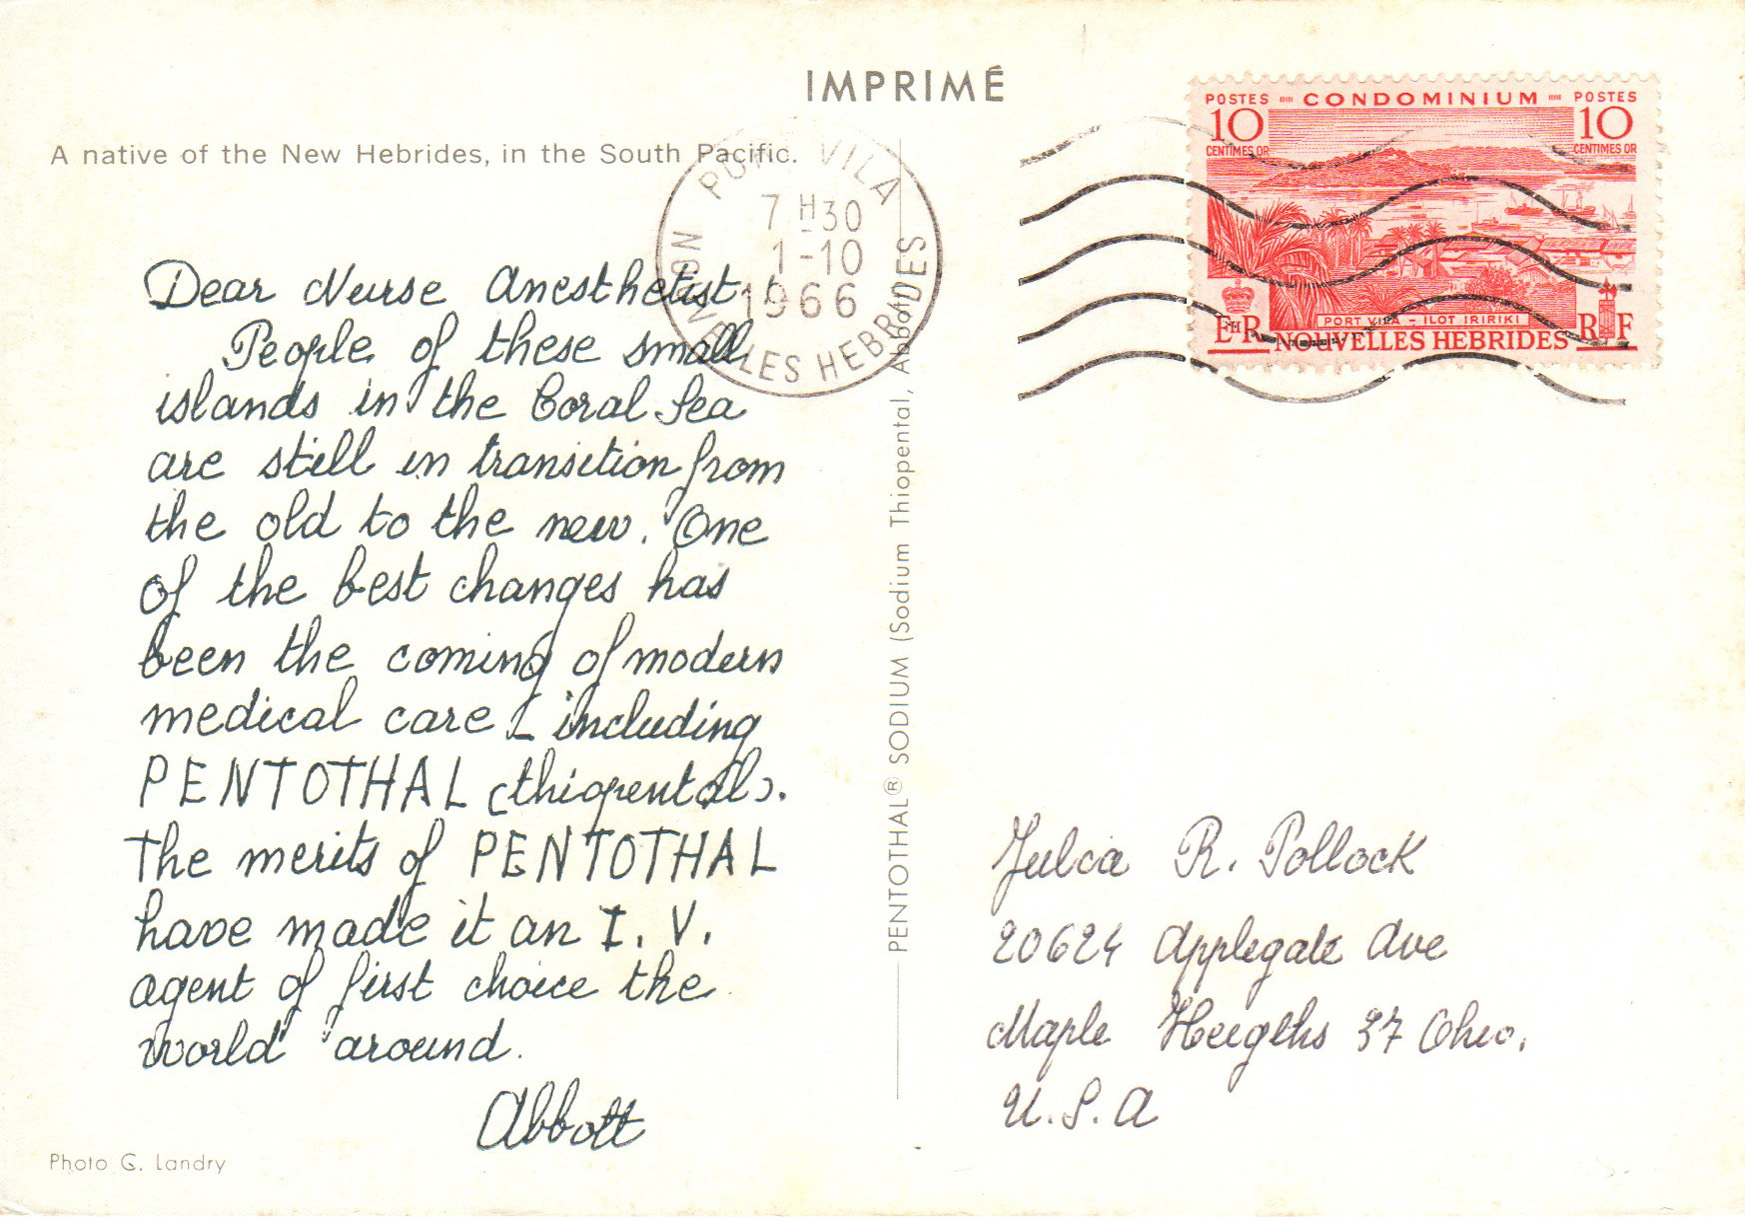 IMPRIMÉ
A native of the New Hebrides, in the South Pacific.
Dear Nurse Anesthetist:
People of these small
islands in the Coral Sea
are still in transition from
the old to the new. One
of the best changes has
been the coming of modern
medical care - including
PENTOTHAL (thiopental).
The merits of PENTOTHAL
have made it an I. V.
agent of first choice the
world around.
Abbott
Photo G. Landry
PORT VILA
7 H30
1-10
1966
NOUVELLES HEBRIDES
PENTOTHAL® SODIUM (Sodium Thiopental, Abbott)
POSTES CONDOMINIUM POSTES
10 10
CENTIMES OR CENTIMES OR
PORT VILA - ILOT IRIRIKI
E II R NOUVELLES HEBRIDES RF
Julia R. Pollock
20624 Applegate Ave
Maple Heigths 37 Ohio.
U.S.A